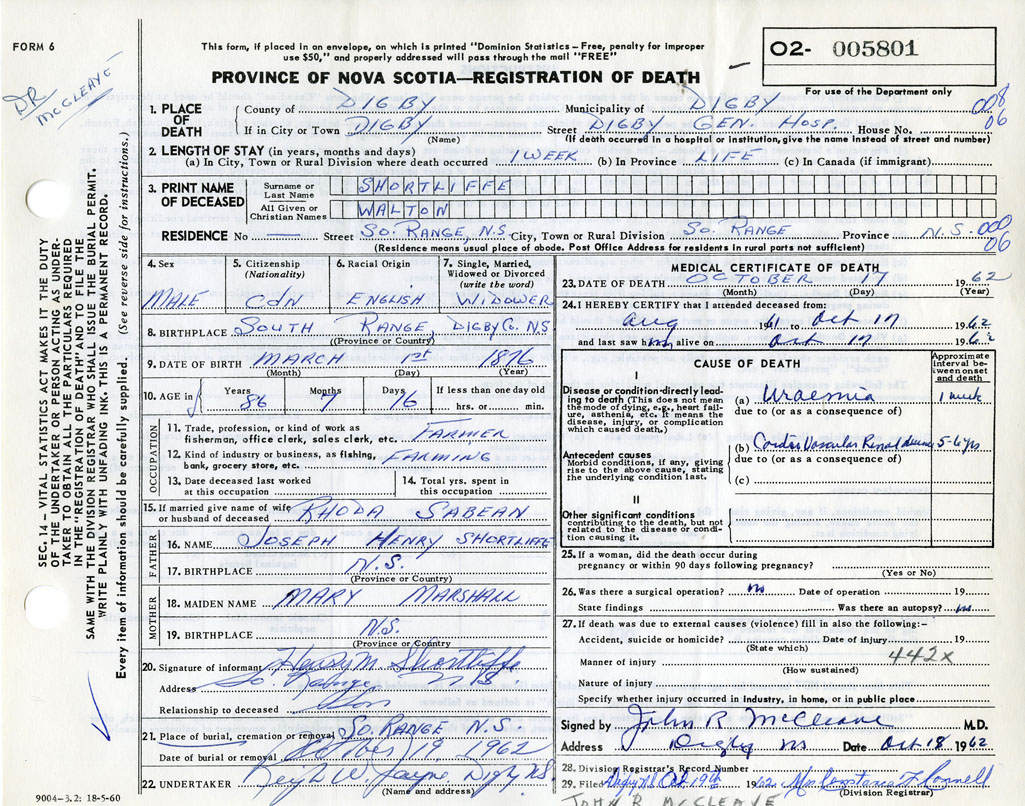 FORM 6
DR McCLEAVE
This form, if placed in an envelope, on which is printed "Dominion Statistics – Free, penalty for improper
use $50," and properly addressed will pass through the mail "FREE"
PROVINCE OF NOVA SCOTIA—REGISTRATION OF DEATH
O2- 005801
For use of the Department only
1. PLACE OF DEATH
County of DIGBY Municipality of DIGBY 008
If in City or Town DIGBY Street DIGBY GEN. HOSP. House No. 06
(Name) (If death occurred in a hospital or institution, give the name instead of street and number)
2. LENGTH OF STAY (in years, months and days)
(a) In City, Town or Rural Division where death occurred 1 WEEK (b) In Province LIFE (c) In Canada (if immigrant)
3. PRINT NAME OF DECEASED
Surname or Last Name SHORTLIFFE
All Given or Christian Names WALTON
RESIDENCE No — Street SO. RANGE, N.S. City, Town or Rural Division SO. RANGE Province N.S. 000
06
(Residence means usual place of abode. Post Office Address for residents in rural parts not sufficient)
4. Sex MALE
5. Citizenship (Nationality) CDN
6. Racial Origin ENGLISH
7. Single, Married, Widowed or Divorced (write the word) WIDOWER
8. BIRTHPLACE SOUTH RANGE, DIGBY Co. N.S.
(Province or Country)
9. DATE OF BIRTH MARCH 1st 1876
(Month) (Day) (Year)
10. AGE in Years 86 Months 7 Days 16 If less than one day old hrs. or min.
OCCUPATION
11. Trade, profession, or kind of work as
fisherman, office clerk, sales clerk, etc. FARMER
12. Kind of industry or business, as fishing,
bank, grocery store, etc. FARMING
13. Date deceased last worked at this occupation
14. Total yrs. spent in this occupation
15. If married give name of wife
or husband of deceased RHODA SABEAN
FATHER
16. NAME JOSEPH HENRY SHORTLIFFE
17. BIRTHPLACE N.S.
(Province or Country)
MOTHER
18. MAIDEN NAME MARY MARSHALL
19. BIRTHPLACE N.S.
(Province or Country
20. Signature of informant Henry M. Shortliffe
Address So. Range N S
Relationship to deceased Son
21. Place of burial, cremation or removal SO. RANGE N.S.
Date of burial or removal October 19, 1962
22. UNDERTAKER W. Jayne, Digby N.S.
(Name and address)
9004-3.2: 18-5-60
MEDICAL CERTIFICATE OF DEATH
23. DATE OF DEATH OCTOBER 17 1962
(Month) (Day) (Year)
24. I HEREBY CERTIFY that I attended deceased from:
Aug 1961 to Oct 17 1962
and last saw him alive on Oct 17 1962
CAUSE OF DEATH
Approximate interval between onset and death
I
Disease or condition directly leading
to death (This does not mean
the mode of dying, e.g., heart failure,
asthenia, etc. It means the
disease, injury, or complication
which caused death.)
(a) Uraemia 1 week
due to (or as a consequence of)
Antecedent causes
Morbid conditions, if any, giving
rise to the above cause, stating
the underlying condition last.
(b) Cardio Vascular Renal disease 5-6 yrs
due to (or as a consequence of)
(c)
II
Other significant conditions
contributing to the death, but not
related to the disease or condition
causing it.
25. If a woman, did the death occur during
pregnancy or within 90 days following pregnancy?
(Yes or No)
26. Was there a surgical operation? no Date of operation 19
State findings Was there an autopsy? no
27. If death was due to external causes (violence) fill in also the following:–
Accident, suicide or homicide? Date of injury 19
(State which) 442x
Manner of injury
(How sustained)
Nature of injury
Specify whether injury occurred in industry, in home, or in public place
Signed by John R McCleave M.D.
Address Digby NS Date Oct 18 1962
28. Division Registrar's Record Number
29. Filed Oct 19th 1962 Mrs Constance F Connell
(Division Registrar)
JOHN R McCLEAVE
SEC. 14 – VITAL STATISTICS ACT MAKES IT THE DUTY
OF THE UNDERTAKER OR PERSON ACTING AS UNDERTAKER
TO OBTAIN ALL THE PARTICULARS REQUIRED
IN THE "REGISTRATION OF DEATH" AND TO FILE THE
SAME WITH THE DIVISION REGISTRAR WHO SHALL ISSUE THE BURIAL PERMIT.
WRITE PLAINLY WITH UNFADING INK. THIS IS A PERMANENT RECORD.
Every item of information should be carefully supplied. (See reverse side for instructions.)